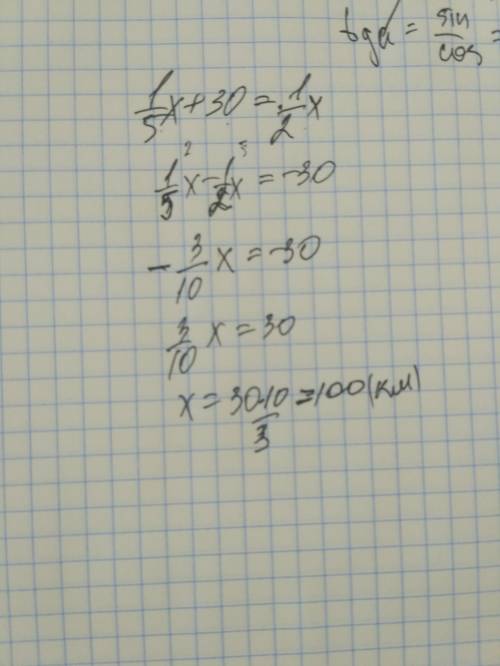 tgα = sin/cos =
1/5x + 30 = 1/2x
1/5²x - 1/2⁵x = -30
- 3/10 x = -30
3/10 x = 30
x = 30·10/3 = 100 (км)